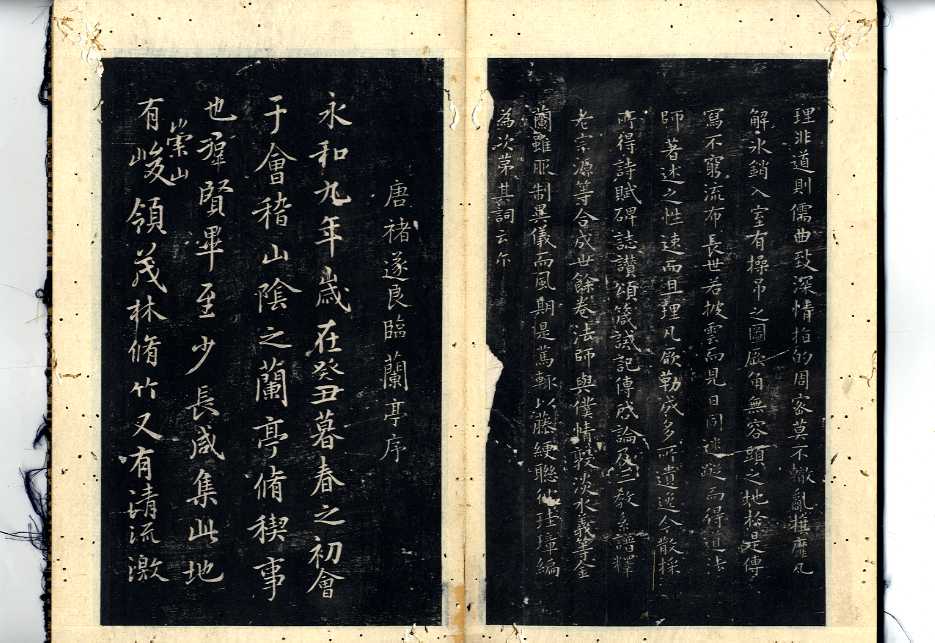 理非道則儒曲致深情指的周密莫不轍亂旗靡瓦
解冰銷入室有操矛之圖屈角無容頭之地於是傳
寫不窮流布長世若披雲而見日同迷蹤而得道法
師著述之性速而且理凡厥勒成多所遺逸今散採
所得詩賦碑誌讚頌箴誡記傳成論及三教系譜釋
老宗源等合成卅餘卷法師與僕情敦淡水義等金
蘭雖服制異儀而風期是篤輒以藤綆聯彼珪璋編
為次第其詞云尒
唐褚遂良臨蘭亭序
永和九年歲在癸丑暮春之初會
于會稽山陰之蘭亭脩稧事
也羣賢畢至少長咸集此地
有崇山峻領茂林脩竹又有清流激